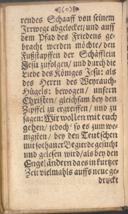 rendes Schaaff von seinem
Irrwege abgelocket/ und auff
den Pfad des Friedens ge-
bracht werden möchte/ den
Fußstapffen der Schäfflein
Jesu zufolgen/ und durch die
Liebe des Königes Jesu: als
des Herrn des Weyrauch-
Hügels: bewogen/ unsern
Christen/ gleichsam bey den
Zipffel zu ergreiffen/ und zu
sagen: Wir wollen mit euch
gehen/ jedoch so es zum we-
nigsten/ bey den Teutschen
mit solchaner Begierde gesucht
und gelesen wird/ als bey den
Engeländern das in kurtzer
Zeit vielmahls auffs neue ge-
druckt